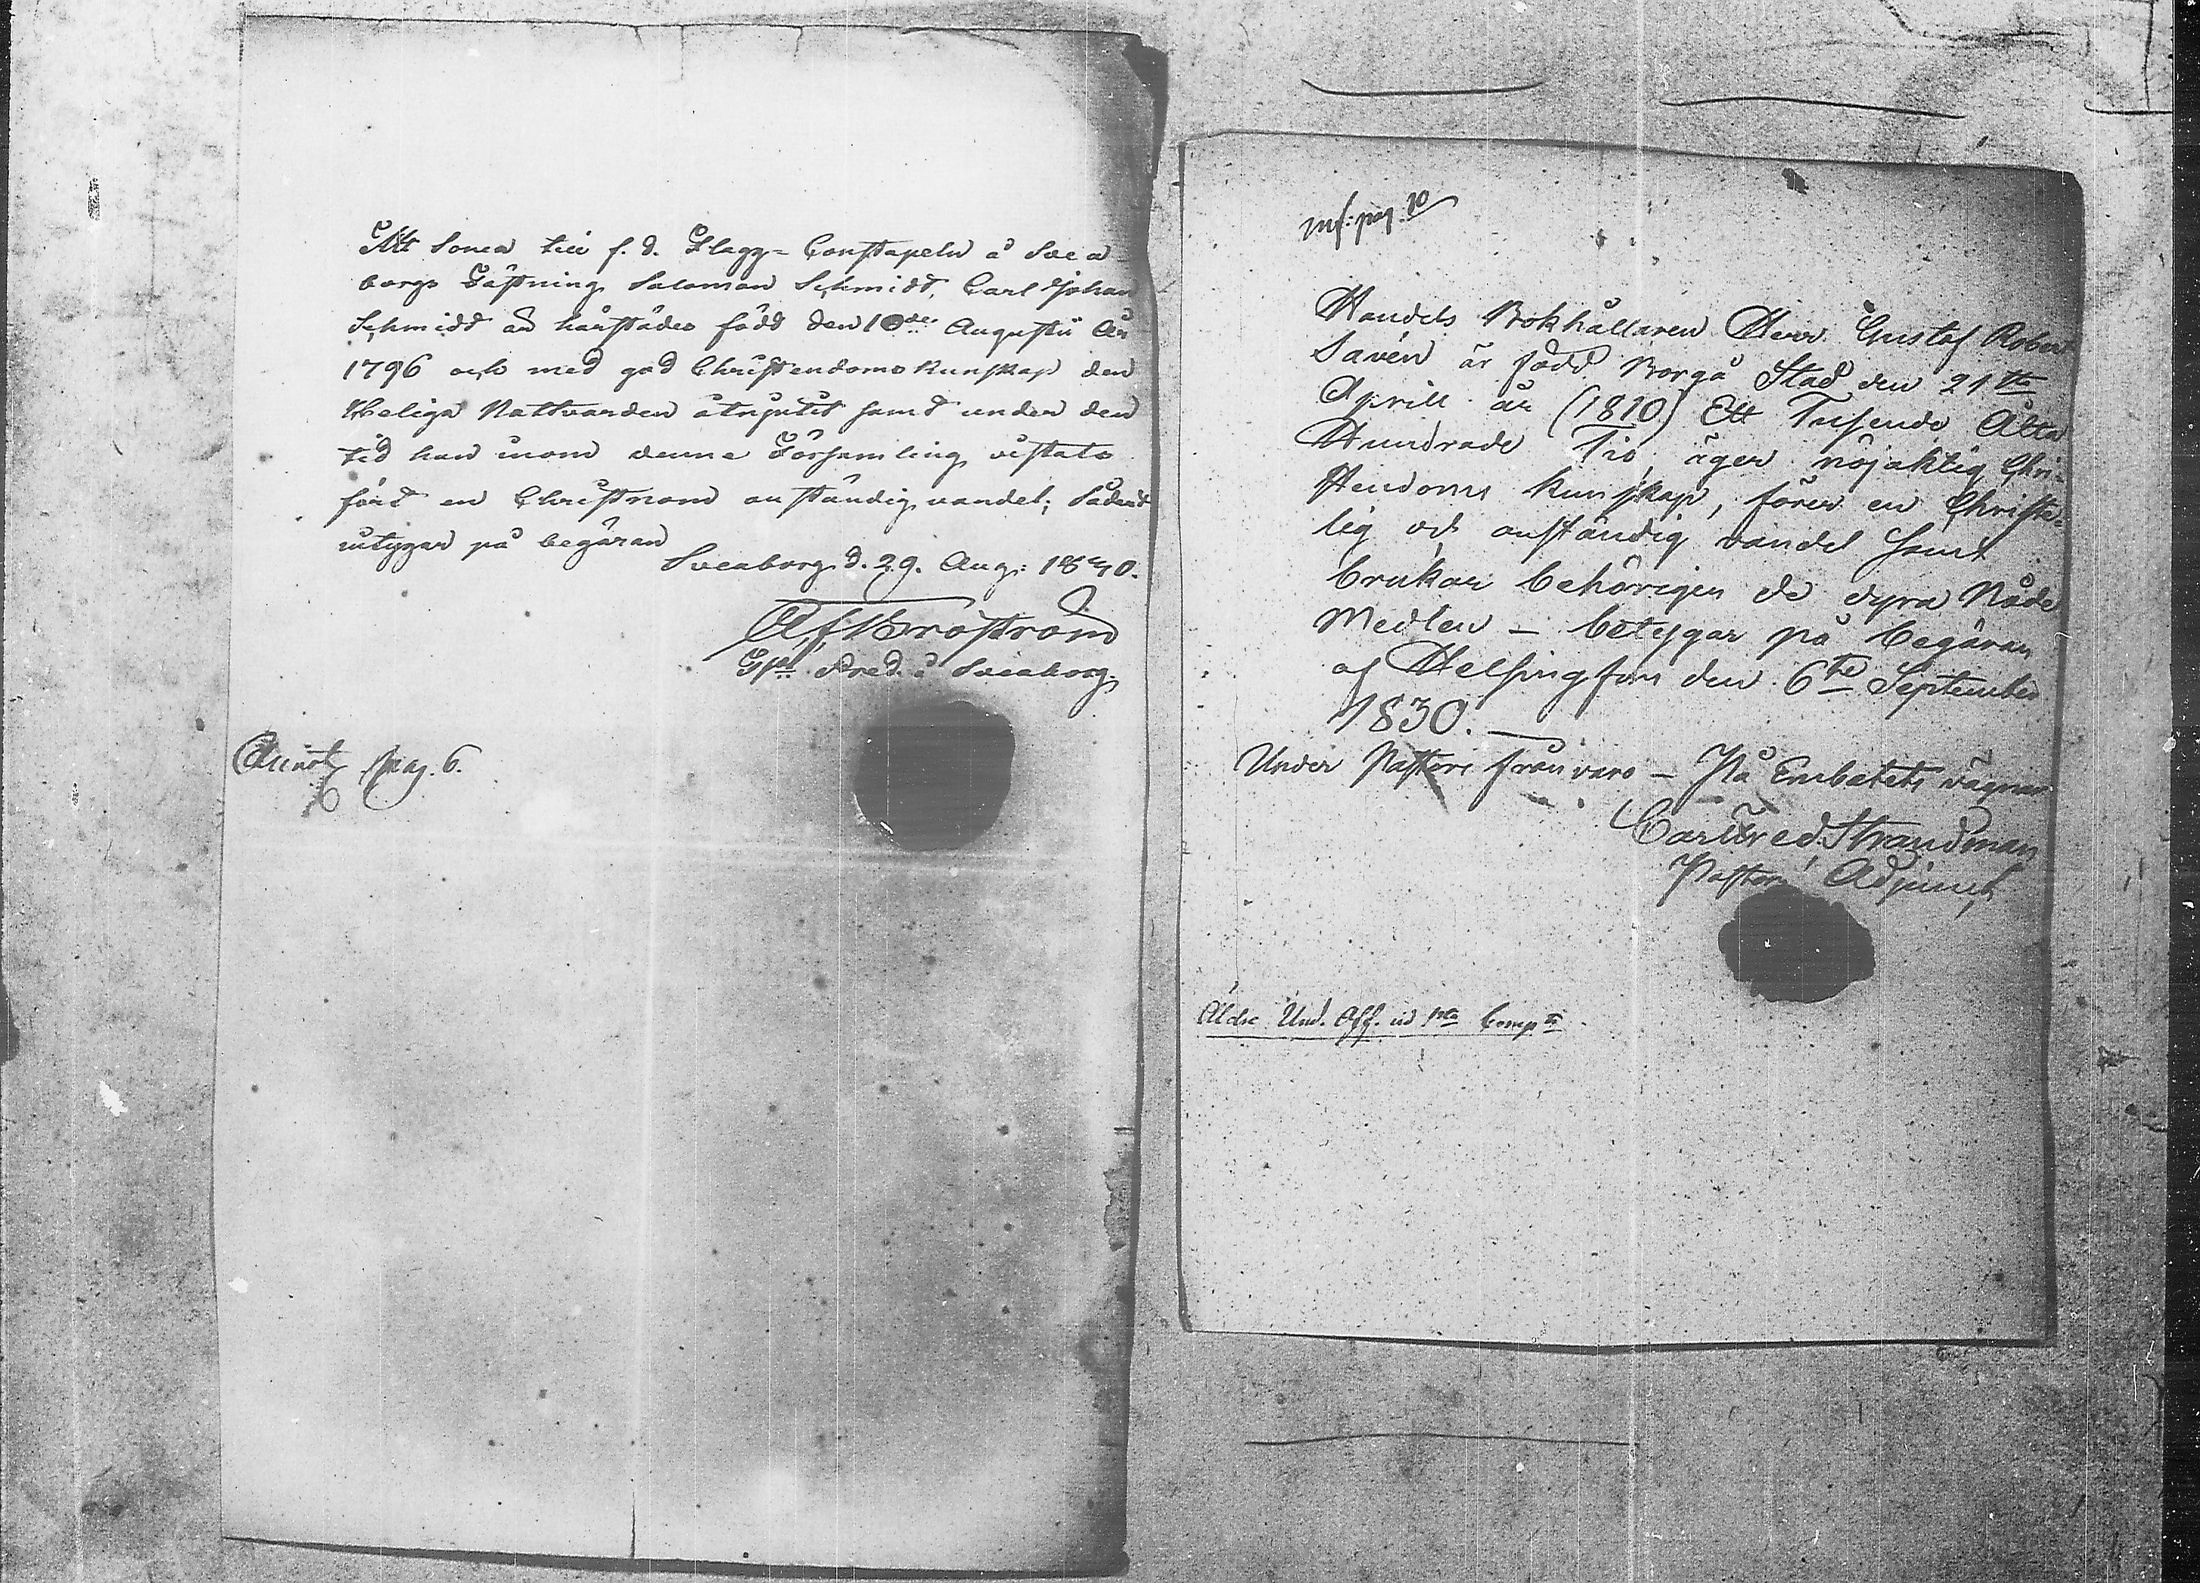 Att Sonen till f. d. Flagg-Constapeln å Svea-
borgs Fästning Salomon Schmidt, Carl Johan
Schmidt är härstädes född den 10de Augusti År
1796 och med god Christendoms kunskap den
Heliga Nattvarden åtnjutit samt under den
tid han inom denna Församling vistats
fört en Christnom anständig vandel; Sådant
intygar på begäran
Sveaborg d. 29. Aug: 1830.
A, f, Broström
Gsn Pred. å Sveaborg.
Annot. pag. 6.
Inf: pag. 10
Handels Bokhållaren Herr Gustaf Robert
Savén är född Borgå Stad den 21sta
Aprill år (1810) Ett Tusende Åtta
Hundrade Tio, äger nöjaktig Chri-
stendoms kunskap, förer en Christe-
lig och anständig vandel samt
brukar behörigen de dyra Nåde
Medlen – betygar på begäran
af Helsingfors den 6te September
1830. —
Under Pastors frånvaro – På Embetets vägnar
Carl Fred. Strandman
Pastors Adjunct,
Äldre Und. Off. vid 1sta Compt